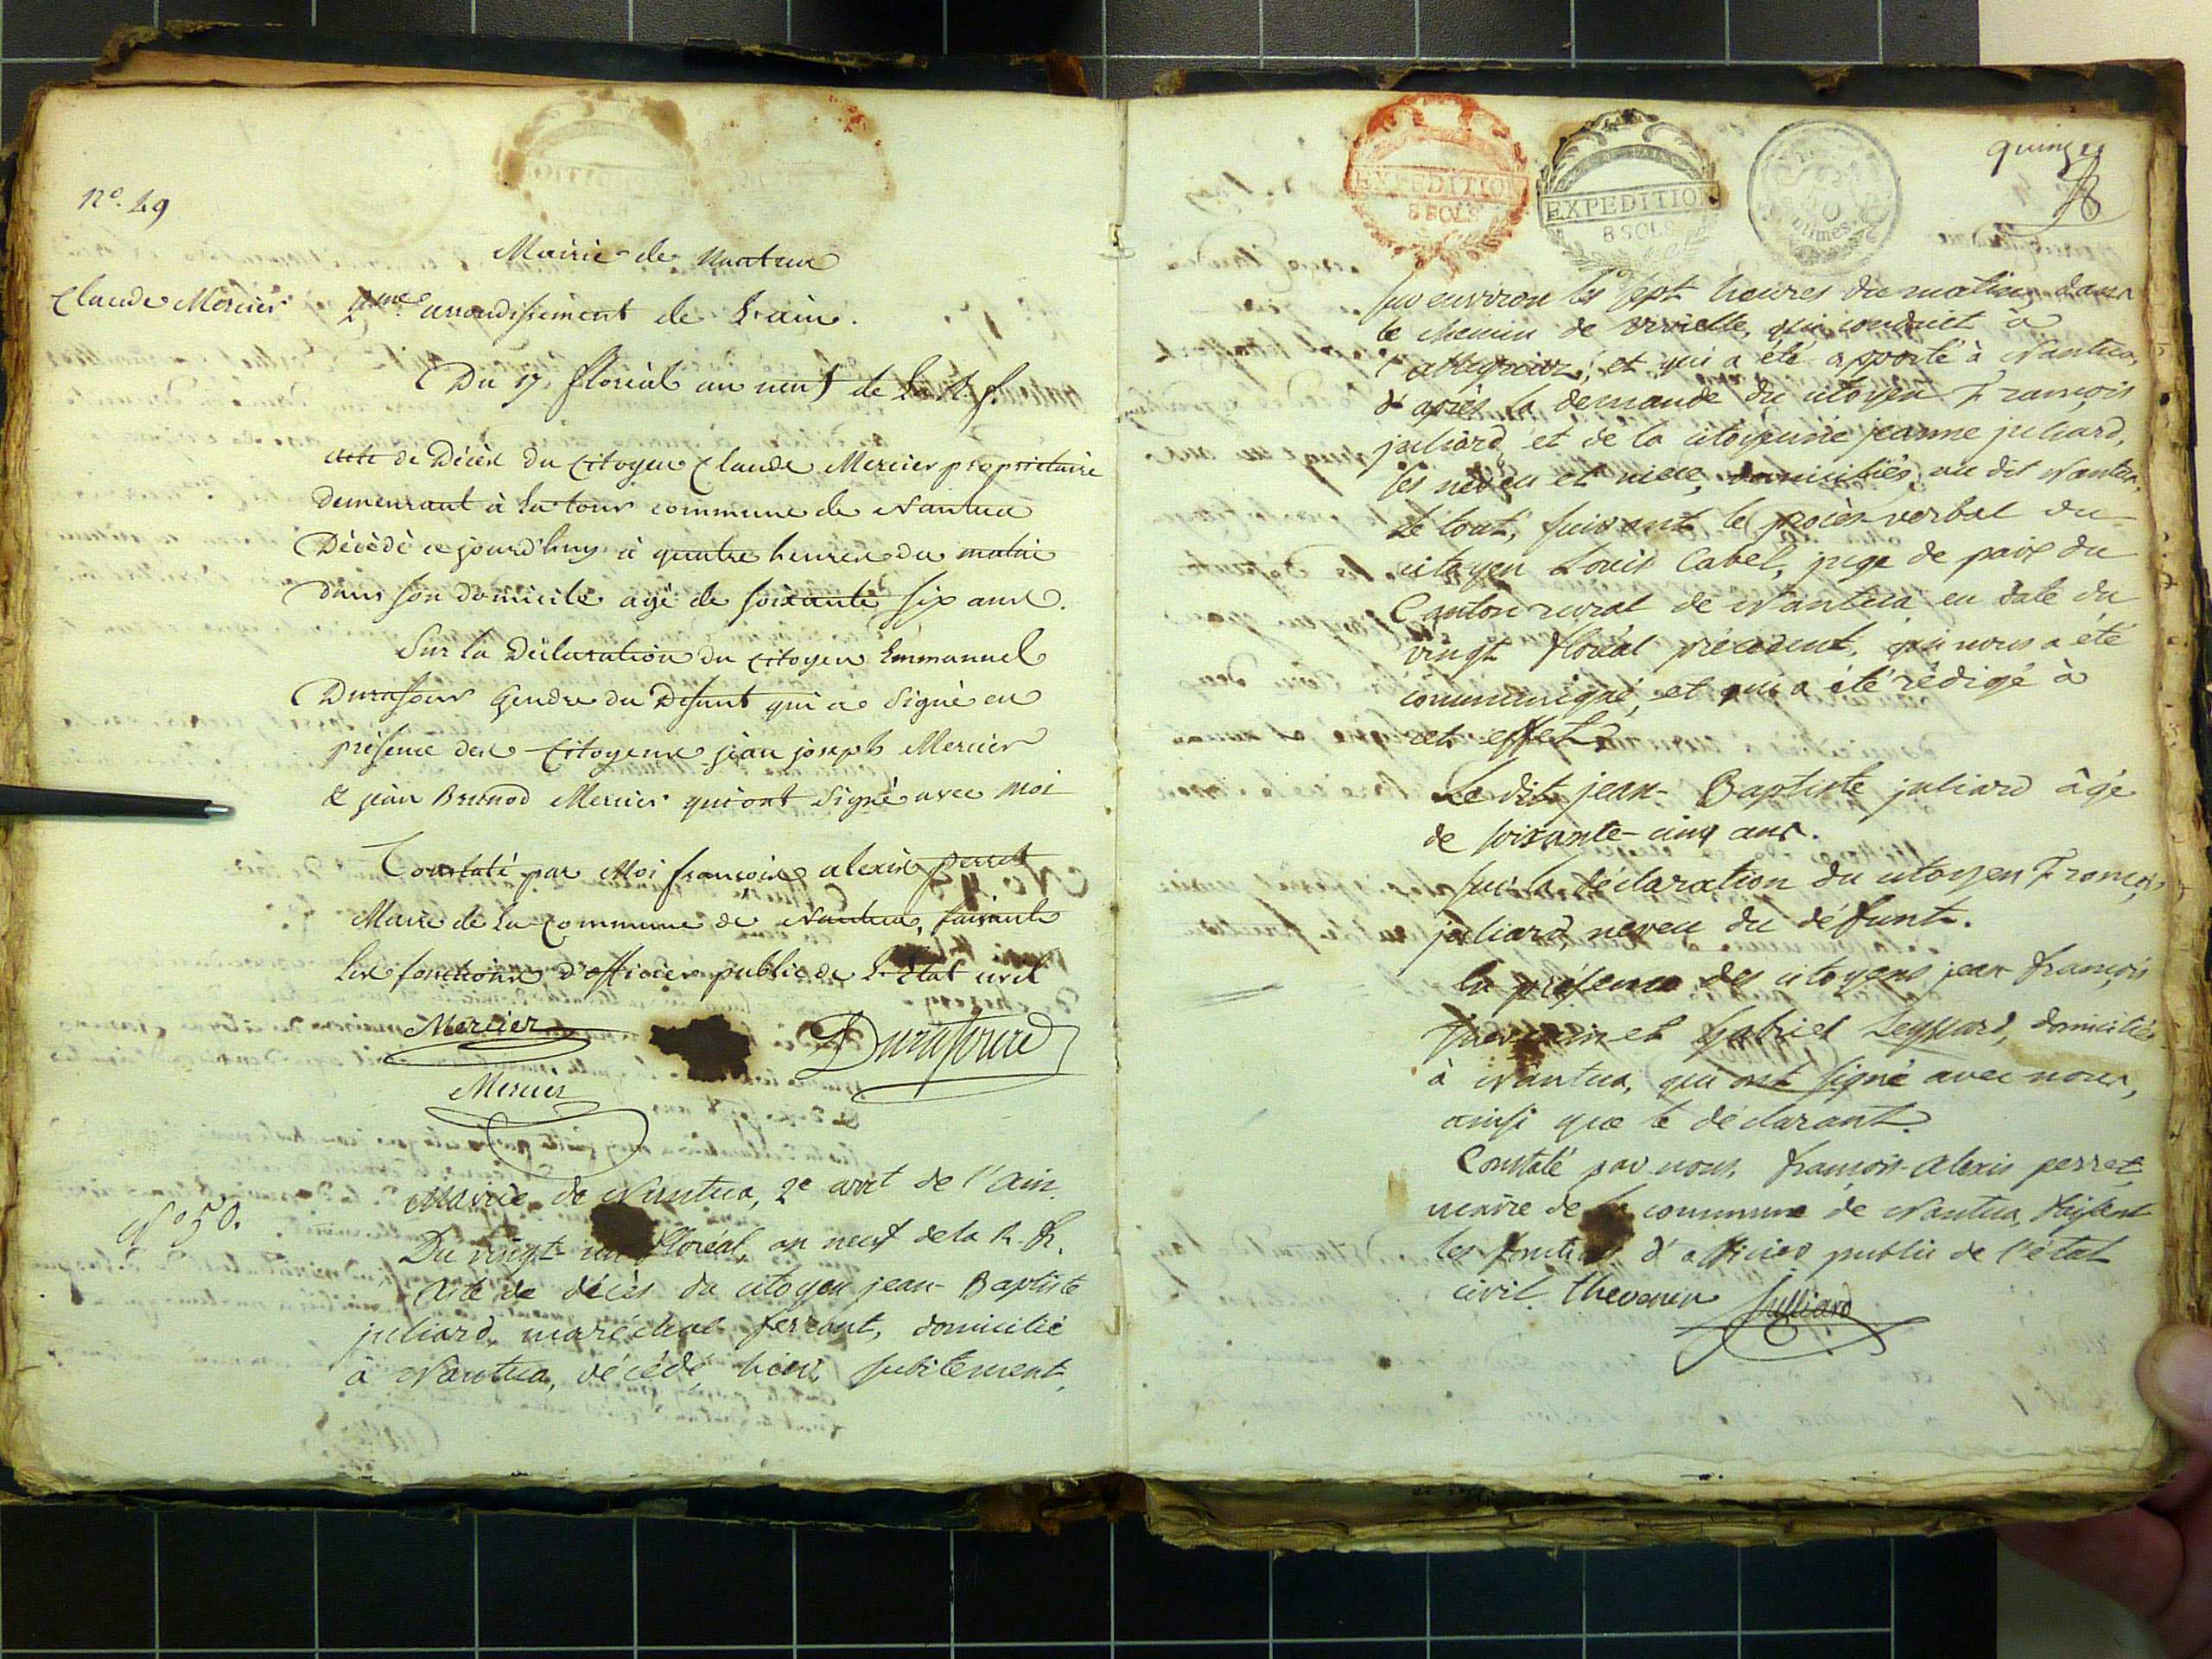 N.o 49
Mairie de Nantua
Claude Mercier
2.me arrondissement de L'ain.
Du 17 floréal an neuf de la R. f.
Acte de Décès du Citoyen Claude Mercier proprietaire
demeurant à la tour commune de Nantua
Décédé ce jourd'huy à quatre heures du matin
dans son domicile agé de soixante six ans.
Sur la Déclaration du Citoyen Emmanuel
Durafour Gendre du Defunt qui a signé en
présence des Citoyens jean joseph Mercier
& jean Brunod Mercier qui ont signé avec moi
Constaté par Moi françois alexis perret
Maire de la Commune de Nantua, faisant
les fonctions d'officier public de L'état civil
Mercier
Durafourd
Mercier
Mairie de Nantua, 2e arrt de l'ain.
N.o 50.
Du vingt un floréal, an neuf de la R. f.
Acte de décès du citoyen jean-Baptiste
juliard, maréchal ferrant, domicilié
à Nantua, décédé hier subitement,
EXPEDITION
8 SOLS
EXPEDITION
8 SOLS
quinze
sur environ les sept heures du matin, dans
le chemin de qui conduit à
et qui a été apporté à Nantua,
d'après la demande du citoyen François
juliard, et de la citoyenne jeanne juliard,
ses neveu et niece, domiciliés au dit Nantua.
Le tout, suivant le procès-verbal du
citoyen Louis Cabel, juge de paix du
Canton rural de Nantua en date du
vingt floréal précédent, qui nous a été
communiqué, et qui a été rédigé à
cet effet.
Le dit jean-Baptiste juliard âgé
de soixante-cinq ans.
Sur la déclaration du citoyen François
juliard, neveu du défunt.
En présence des citoyens jean françois
Thevenin et Gabriel domiciliés
à Nantua, qui ont signé avec nous,
ainsi que le déclarant.
Constaté par nous, françois-alexis perret,
maire de la commune de Nantua, faisant
les fonctions d'officier public de l'état
civil. thevenin Julliard